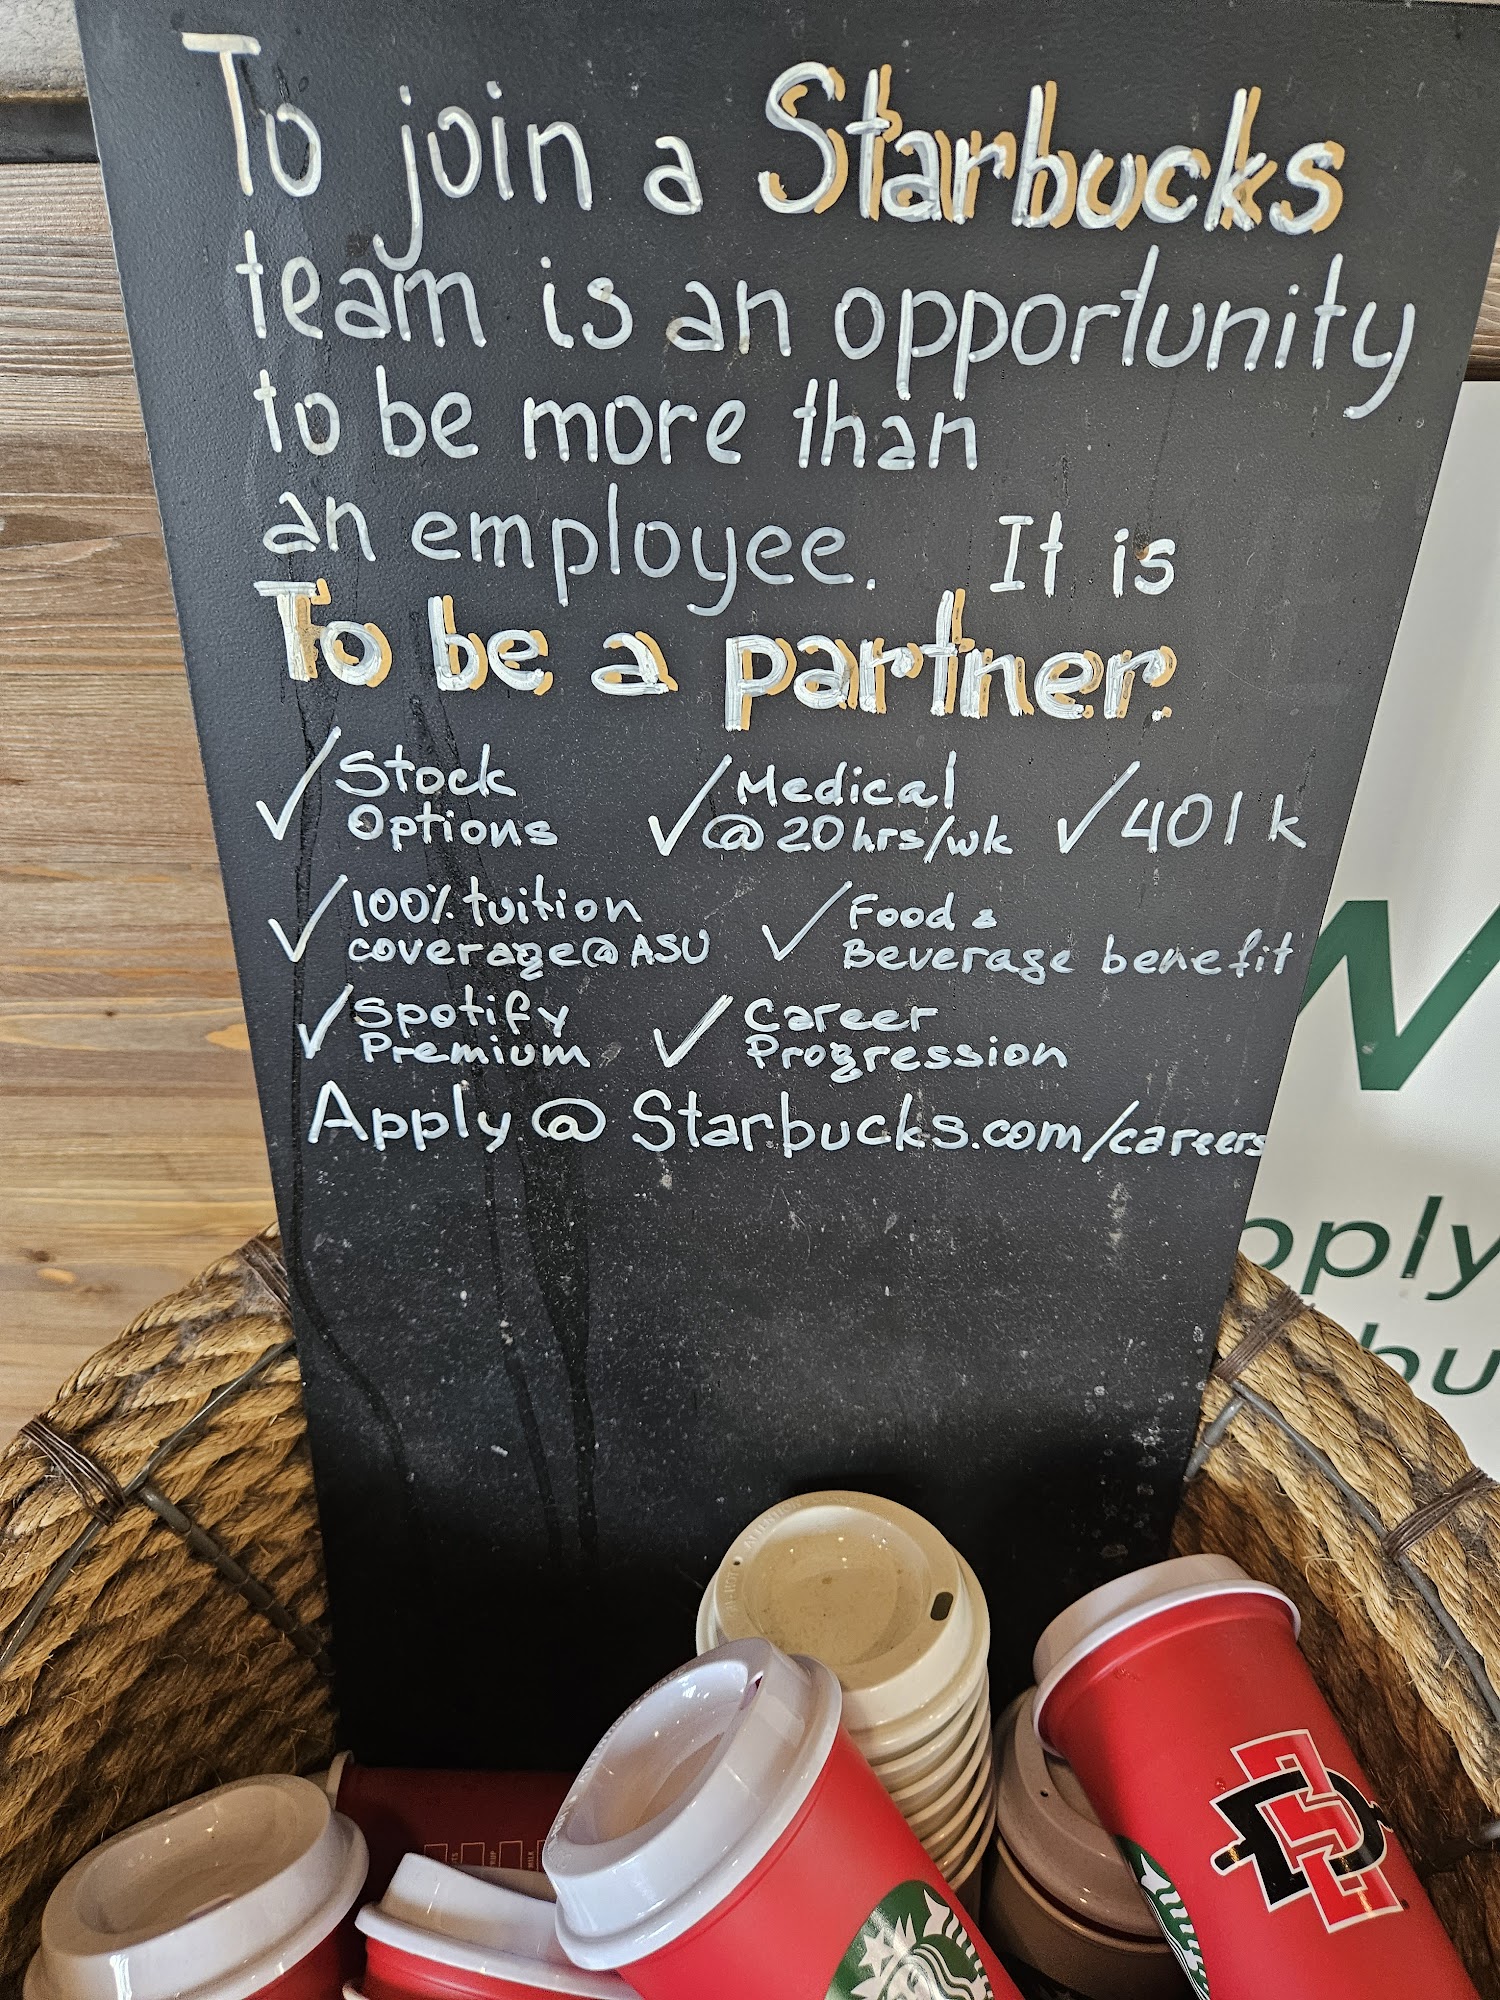 To join a Starbucks
team is an opportunity
to be more than
an employee. It is
To be a partner.
✓ Stock Options
✓ Medical @ 20 hrs/wk
✓ 401k
✓ 100% tuition coverage @ ASU
✓ Food & Beverage benefit
✓ Spotify Premium
✓ Career Progression
Apply @ Starbucks.com/careers
pply
bu